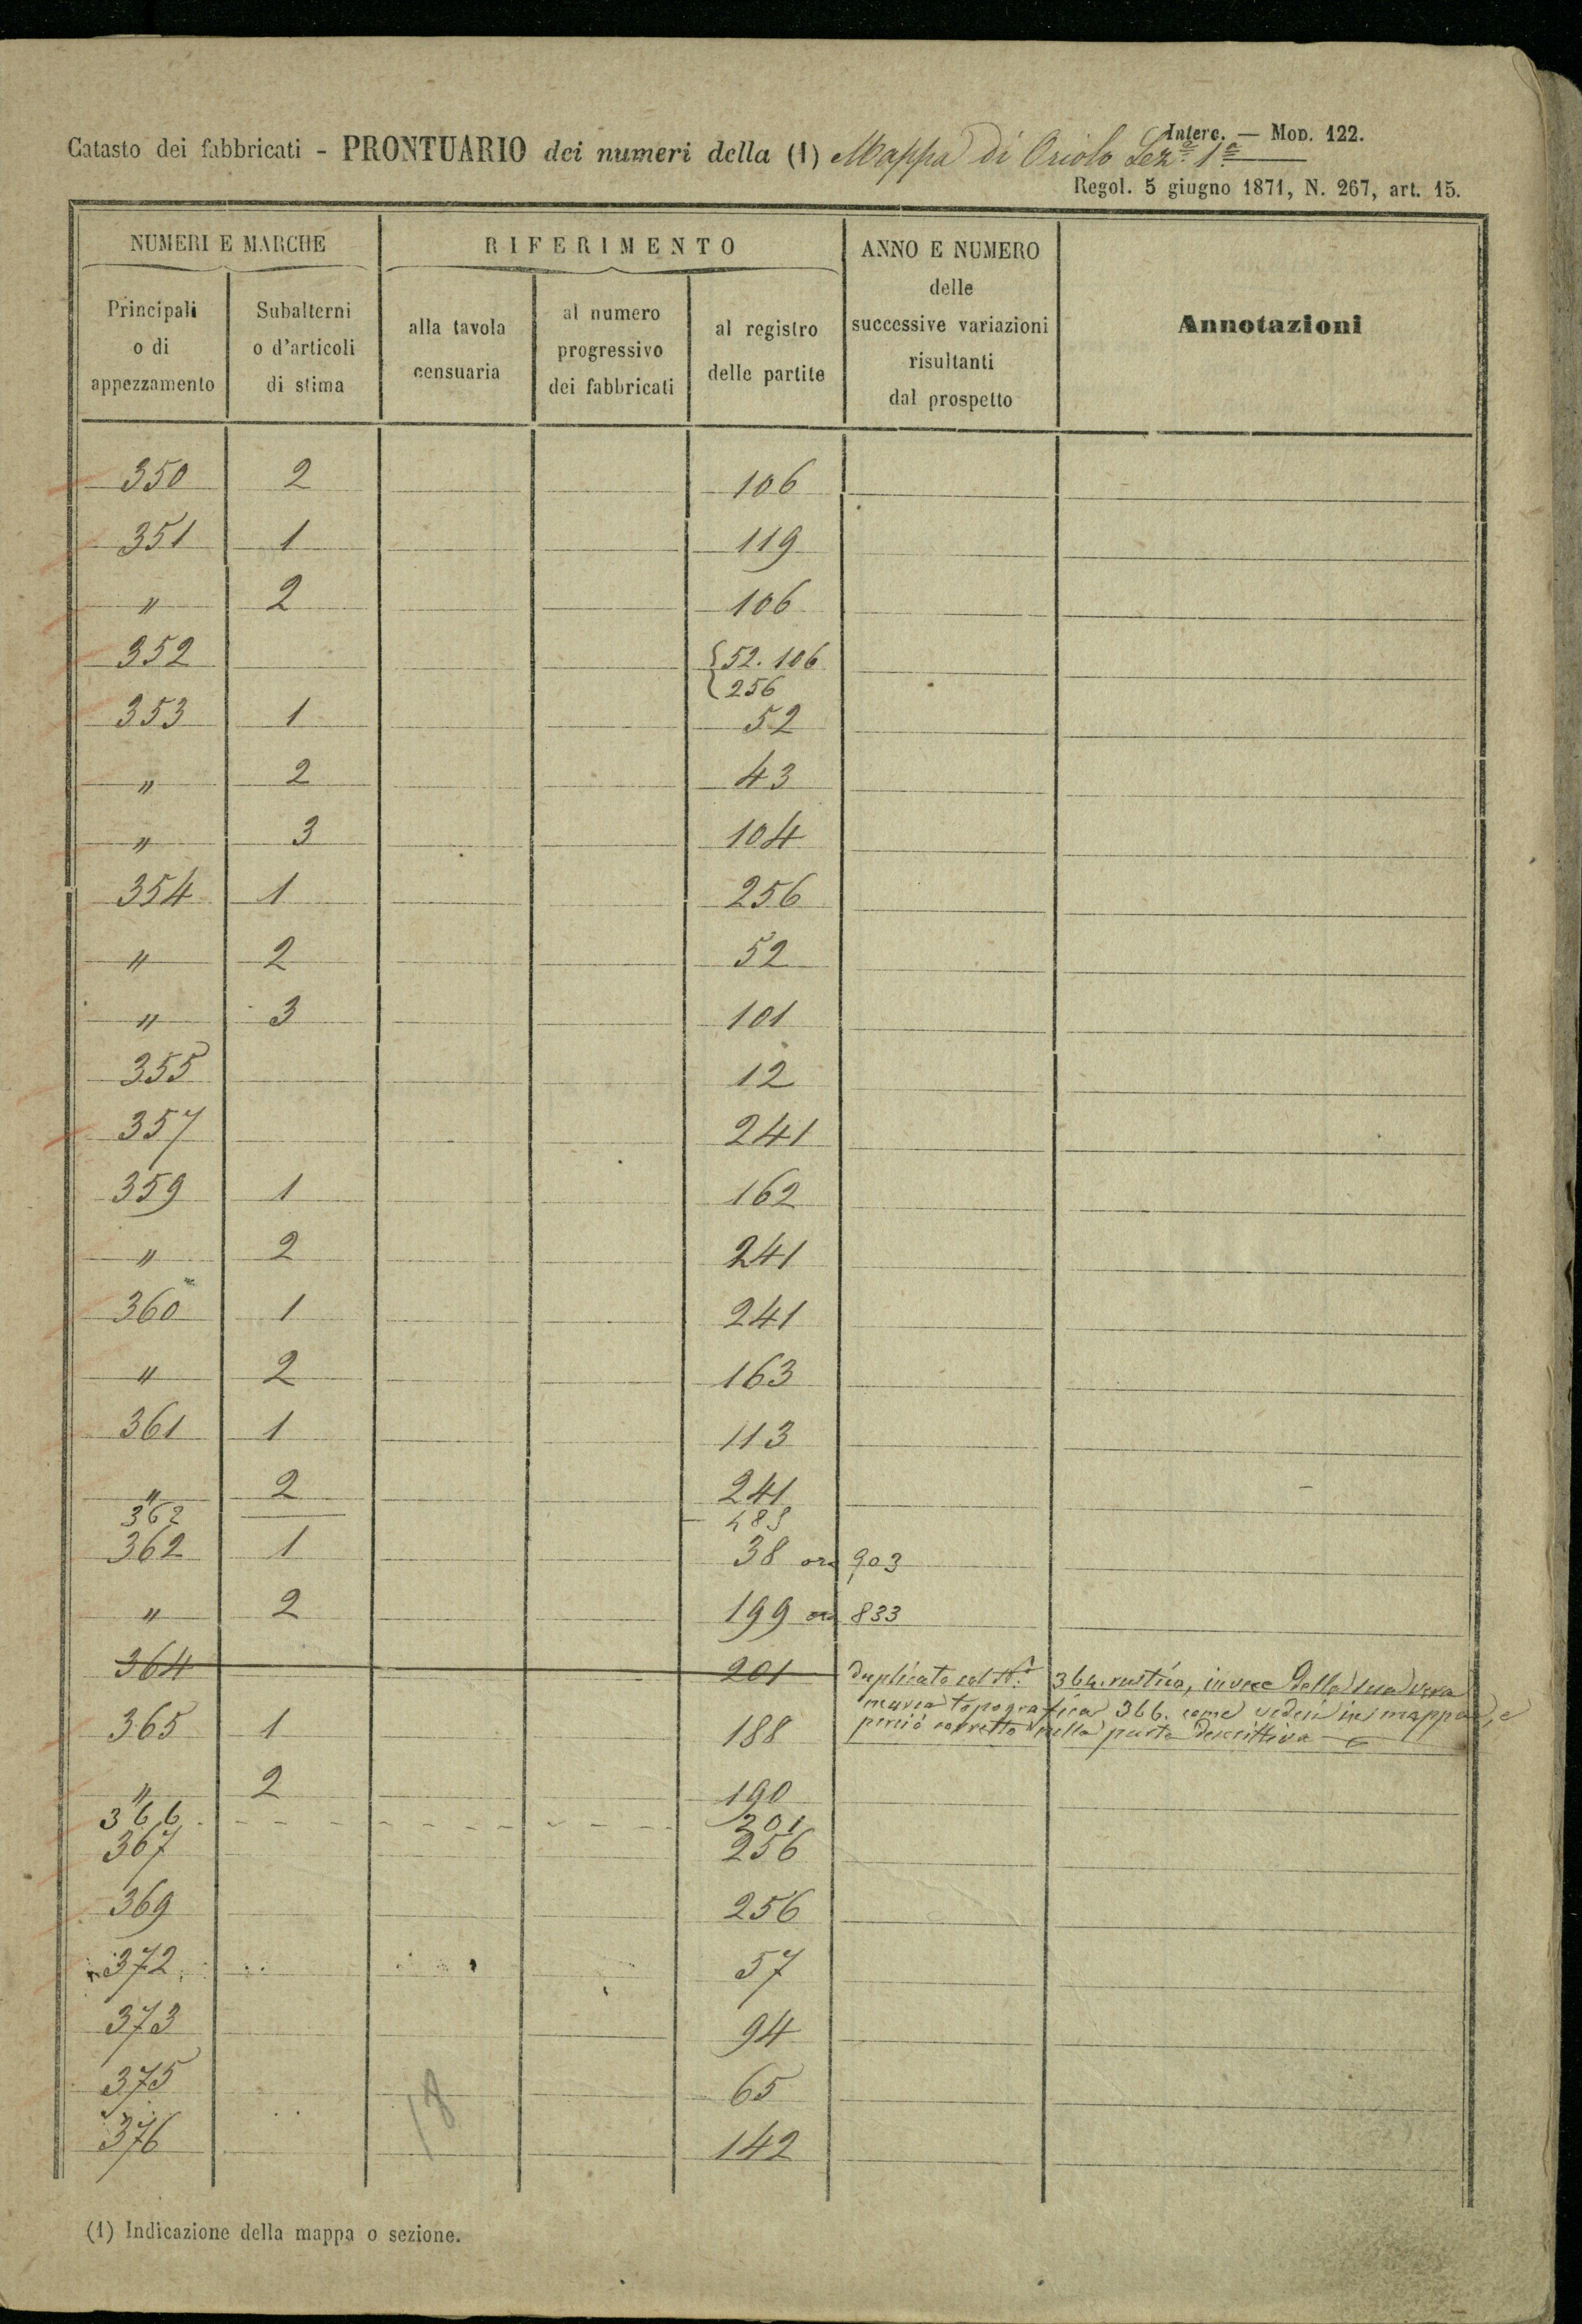 Interc. — Mod. 122.
Catasto dei fabbricati - PRONTUARIO dei numeri della (1) Mappa di Oriolo Sez.ª 1ª
Regol. 5 giugno 1871, N. 267, art. 15.
NUMERI E MARCHE
RIFERIMENTO
ANNO E NUMERO
delle
successive variazioni
risultanti
dal prospetto
Annotazioni
Principali
o di
appezzamento
Subalterni
o d'articoli
di stima
alla tavola
censuaria
al numero
progressivo
dei fabbricati
al registro
delle partite
350 2 106
351 1 119
" 2 106
352 {52. 106
256
353 1 52
" 2 43
" 3 104
354 1 256
" 2 52
" 3 101
355 12
357 241
359 1 162
" 2 241
360 1 241
" 2 163
361 1 113
" 2 241
362
362 1 38 ora 903
" 2 199 ora 833
364 201 duplicato col N.º 364. rustico, invece della sua vera
marca topografica 366. come vedesi in mappa, e
perciò corretto nella parte descrittiva
365 1 188
" 2 190
366 201
367 256
369 256
372 57
373 94
375 65
376 142
18
(1) Indicazione della mappa o sezione.